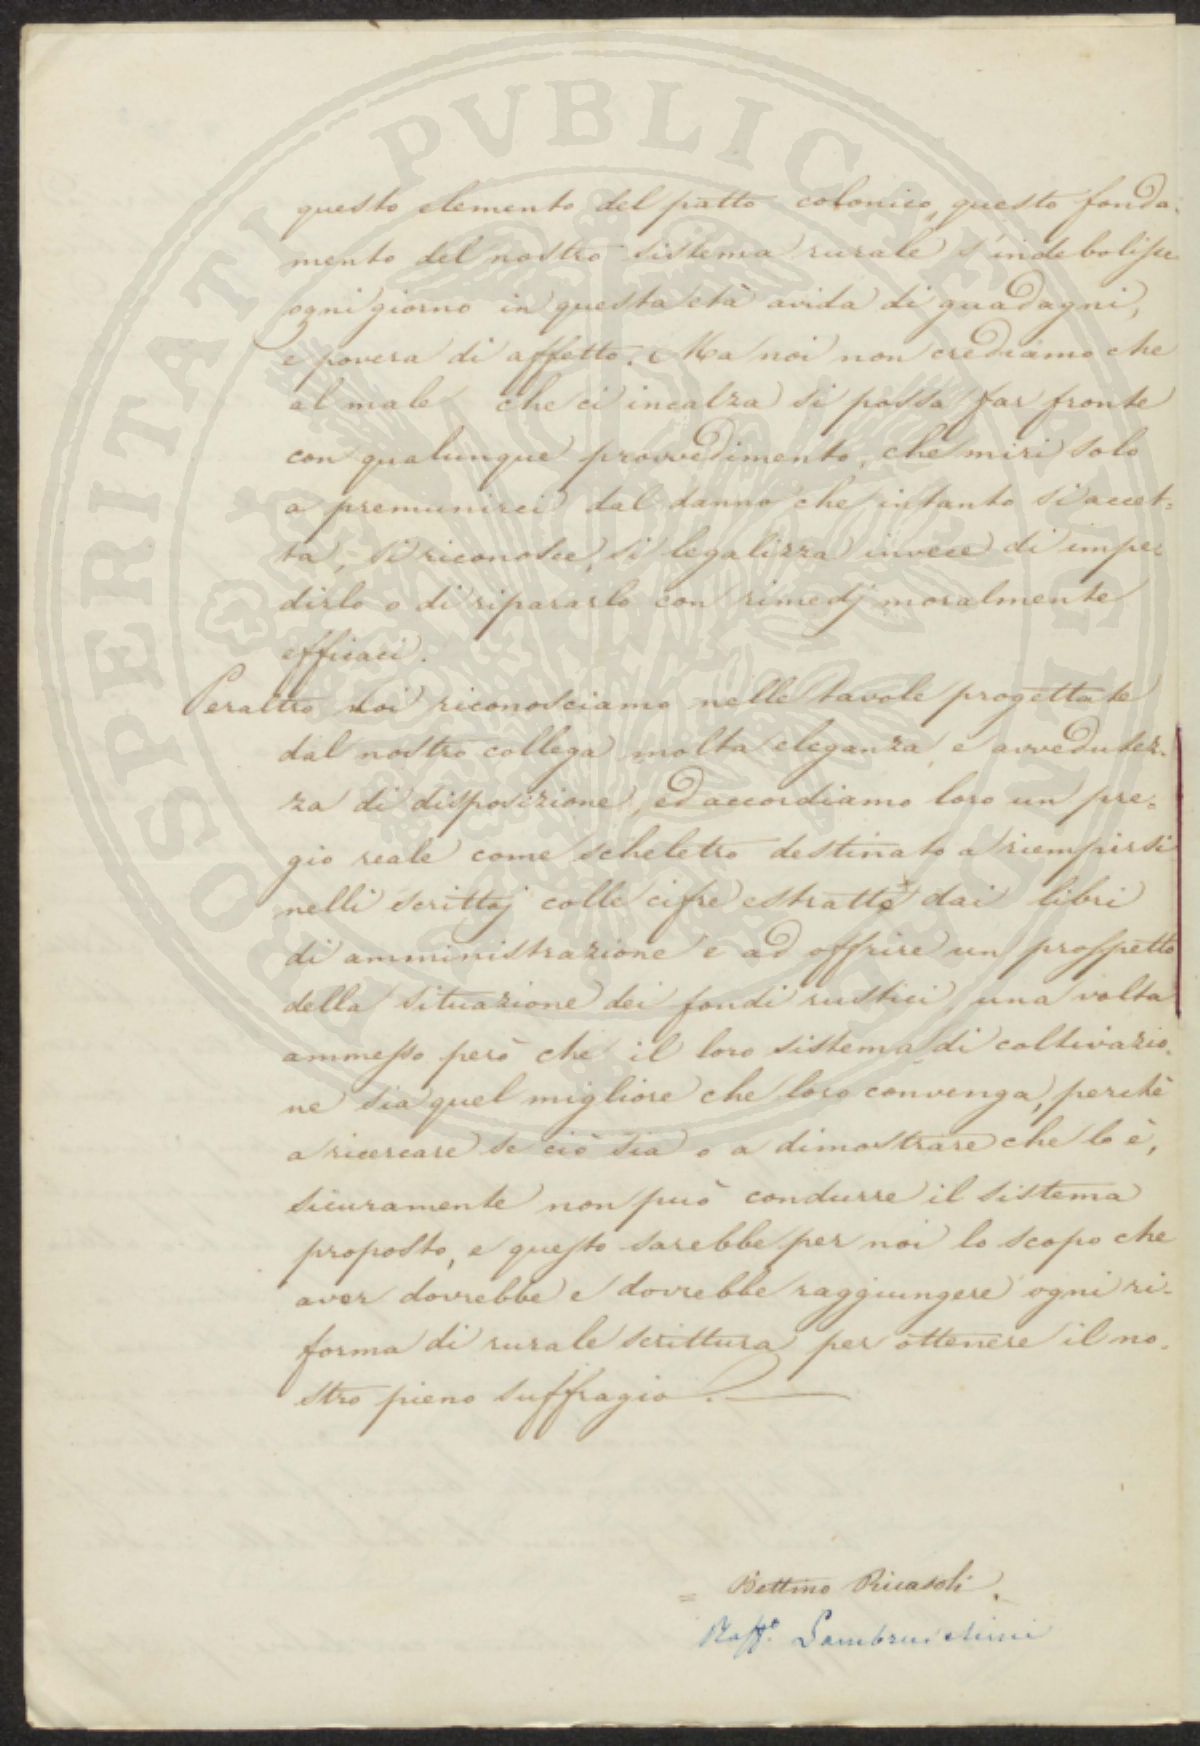 questo elemento del patto colonico, questo fonda-
mento del nostro sistema rurale s'indebolisce
ogni giorno in questa età avida di guadagni,
e povera di affetto. Ma noi non crediamo che
al male che ci incalza si possa far fronte
con qualunque provvedimento, che miri solo
a premunirci dal danno che intanto si accet-
ta, si riconosce, si legalizza invece di impe-
dirlo o di ripararlo con rimedj moralmente
efficaci.
Peraltro noi riconosciamo nelle tavole progettate
dal nostro collega molta eleganza, e avvedutez-
za di disposizione, ed accordiamo loro un pre-
gio reale come scheletro destinato a riempirsi
nelli scrittoj colle cifre estratte dai libri
di amministrazione e ad offrire un prospetto
della situazione dei fondi rustici, una volta
ammesso però che il loro sistema di coltivazio-
ne sia quel migliore che loro convenga, perchè
a ricercare se ciò sia o a dimostrare che lo è,
sicuramente non può condurre il sistema
proposto, e questo sarebbe per noi lo scopo che
aver dovrebbe e dovrebbe raggiungere ogni ri-
forma di rurale scrittura per ottenere il no-
stro pieno suffragio.
= Bettino Ricasoli.
Raff.º Lambruschini
PROSPERITATI PVBLICAE AVGENDAE